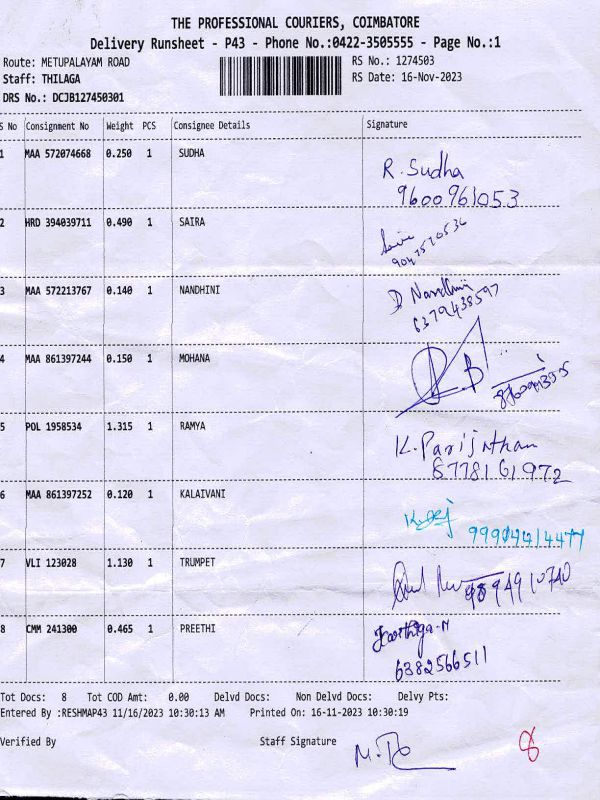 THE PROFESSIONAL COURIERS, COIMBATORE
Delivery Runsheet - P43 - Phone No.:0422-3505555 - Page No.:1
Route: METUPALAYAM ROAD RS No.: 1274503
Staff: THILAGA RS Date: 16-Nov-2023
DRS No.: DCJB127450301
S No Consignment No Weight PCS Consignee Details Signature
1 MAA 572074668 0.250 1 SUDHA
R. Sudha
9600961053
2 HRD 394039711 0.490 1 SAIRA
3 MAA 572213767 0.140 1 NANDHINI
D Nandhini
6379438597
4 MAA 861397244 0.150 1 MOHANA
5 POL 1958534 1.315 1 RAMYA
K. Parijnthan
8778161972
6 MAA 861397252 0.120 1 KALAIVANI
7 VLI 123028 1.130 1 TRUMPET
8 CMM 241300 0.465 1 PREETHI
6382566511
Tot Docs: 8 Tot COD Amt: 0.00 Delvd Docs: Non Delvd Docs: Delvy Pts:
Entered By :RESHMAP43 11/16/2023 10:30:13 AM Printed On: 16-11-2023 10:30:19
Verified By Staff Signature
8